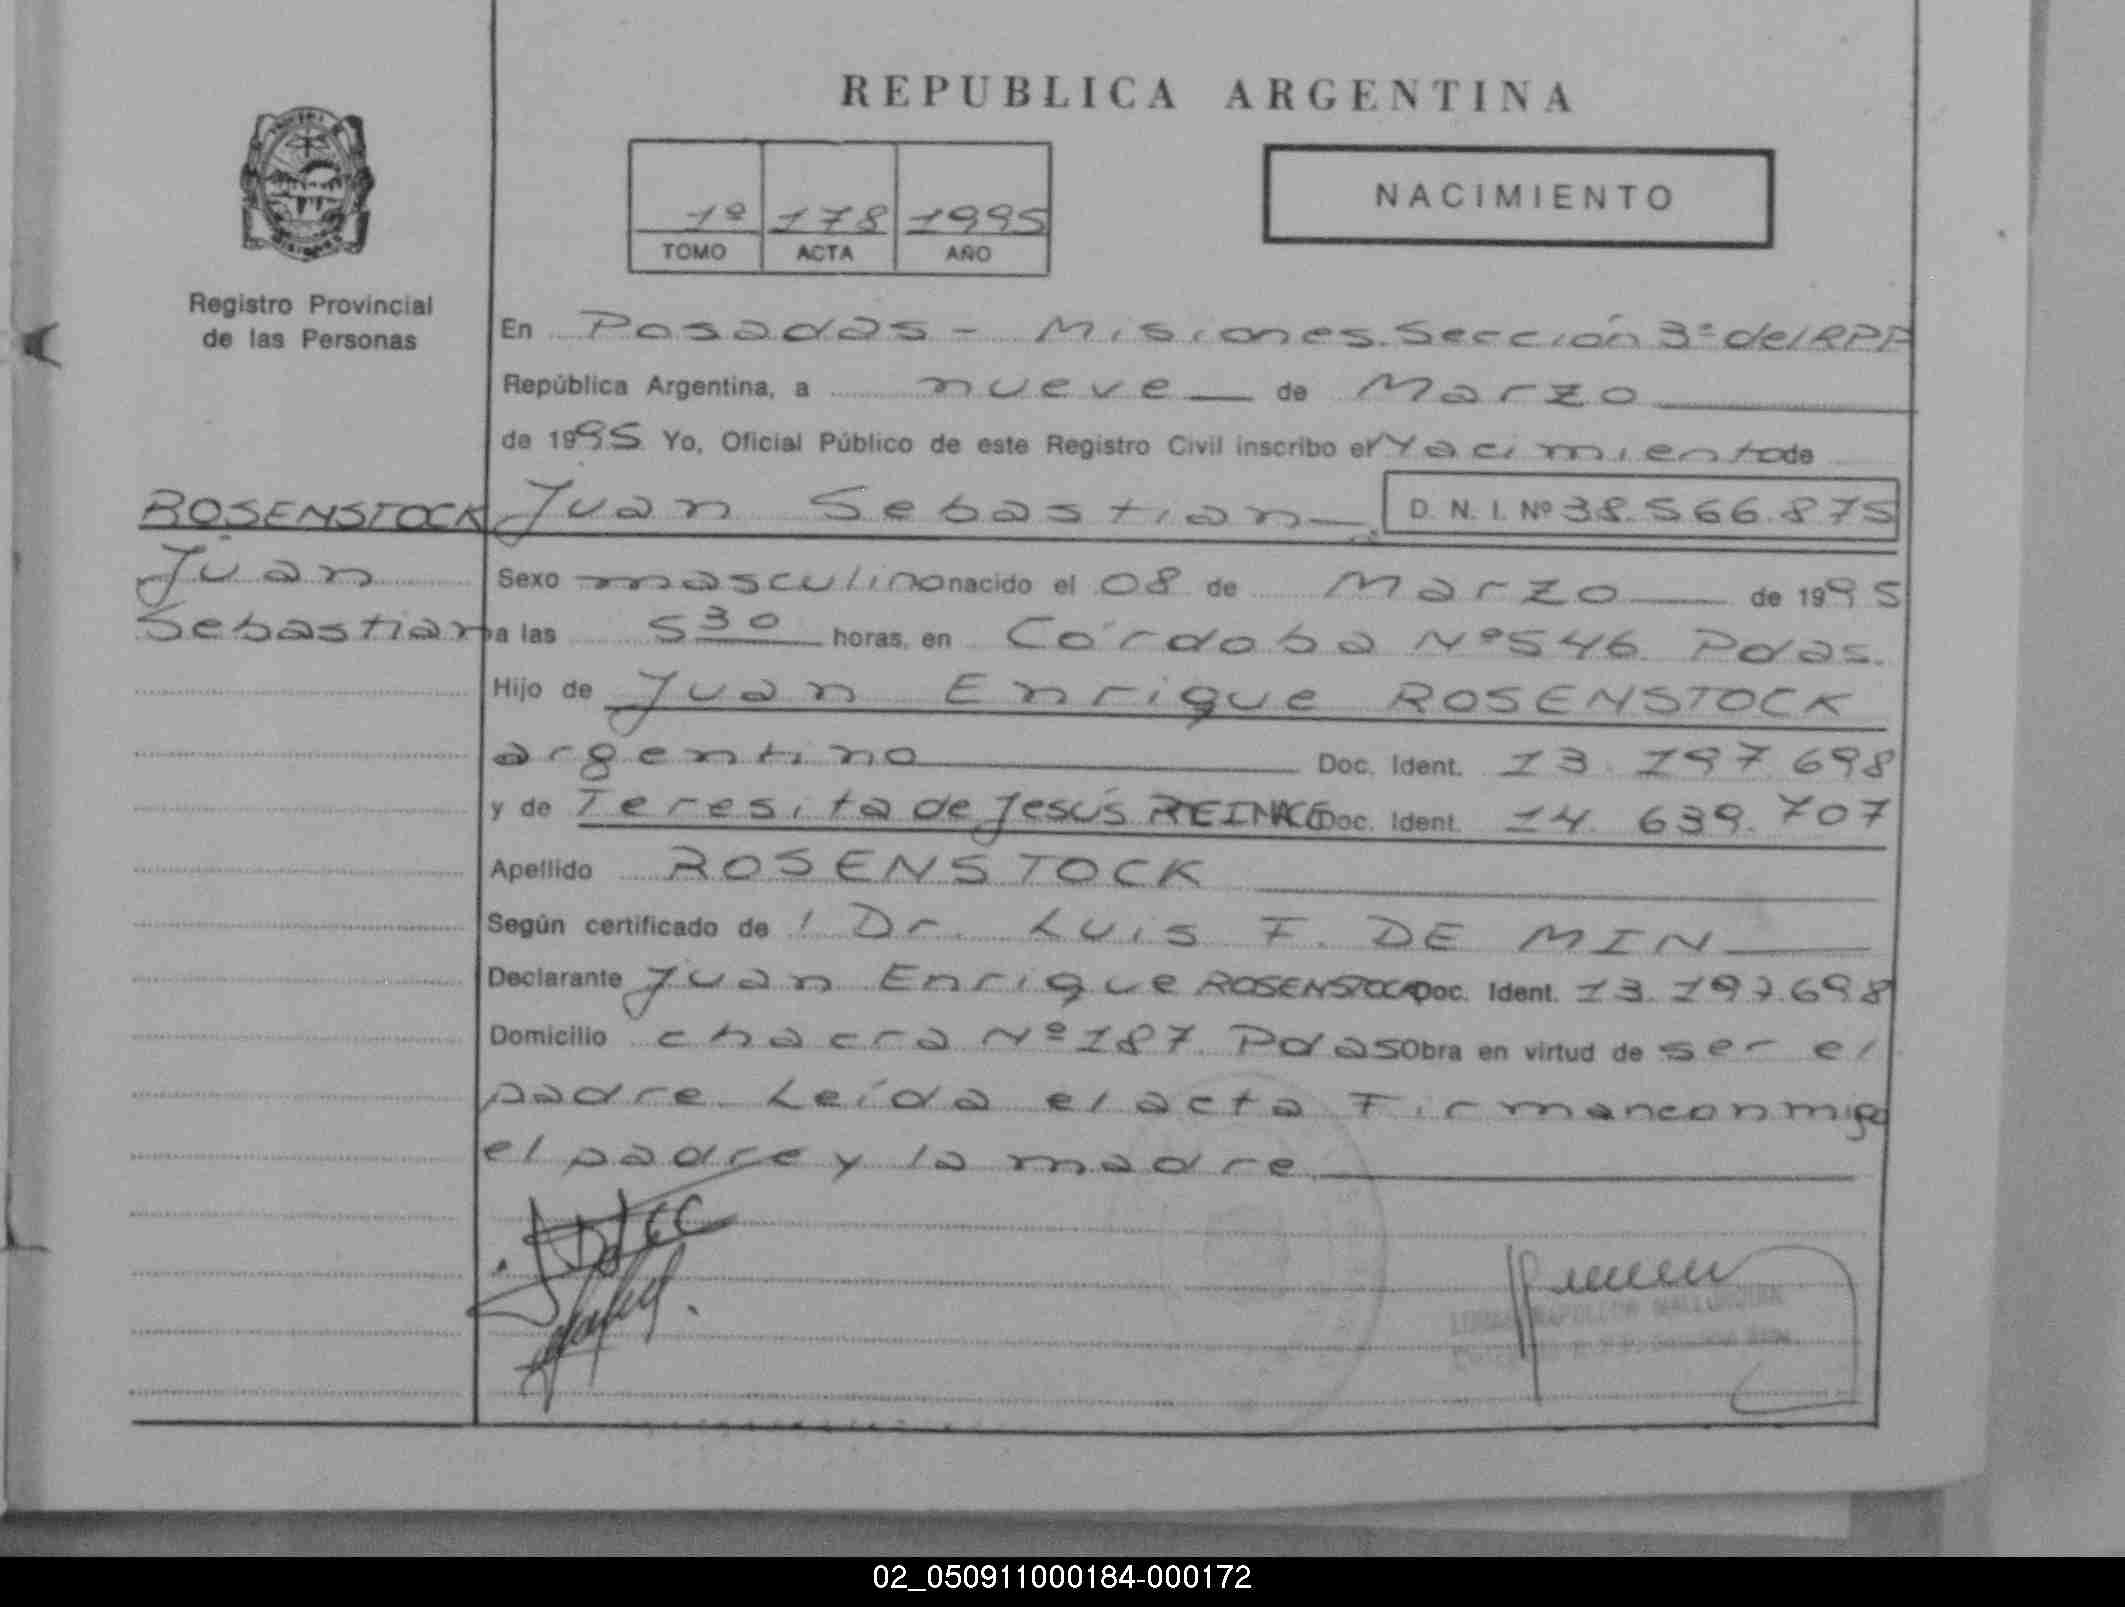 REPUBLICA ARGENTINA
1º 178 1995
TOMO ACTA AÑO
NACIMIENTO
Registro Provincial
de las Personas
En Posadas - Misiones. Sección 3ª del RPP
República Argentina, a nueve de Marzo
de 1995 Yo, Oficial Público de este Registro Civil inscribo el Nacimiento de
ROSENSTOCK Juan Sebastian D. N. I. Nº 38.566.875
Juan Sexo masculino nacido el 08 de Marzo de 1995
Sebastian a las 5 30 horas, en Córdoba Nº 546 Pdas.
Hijo de Juan Enrique ROSENSTOCK
argentino Doc. Ident. 13.197.698
y de Teresita de Jesús Doc. Ident. 14.639.707
Apellido ROSENSTOCK
Según certificado de l Dr. Luis F. DE MIN
Declarante Juan Enrique ROSENSTOCK Doc. Ident. 13.197.698
Domicilio chacra Nº 187 Pdas Obra en virtud de ser el
padre Leída el acta Firman conmigo
el padre y la madre
02_050911000184-000172